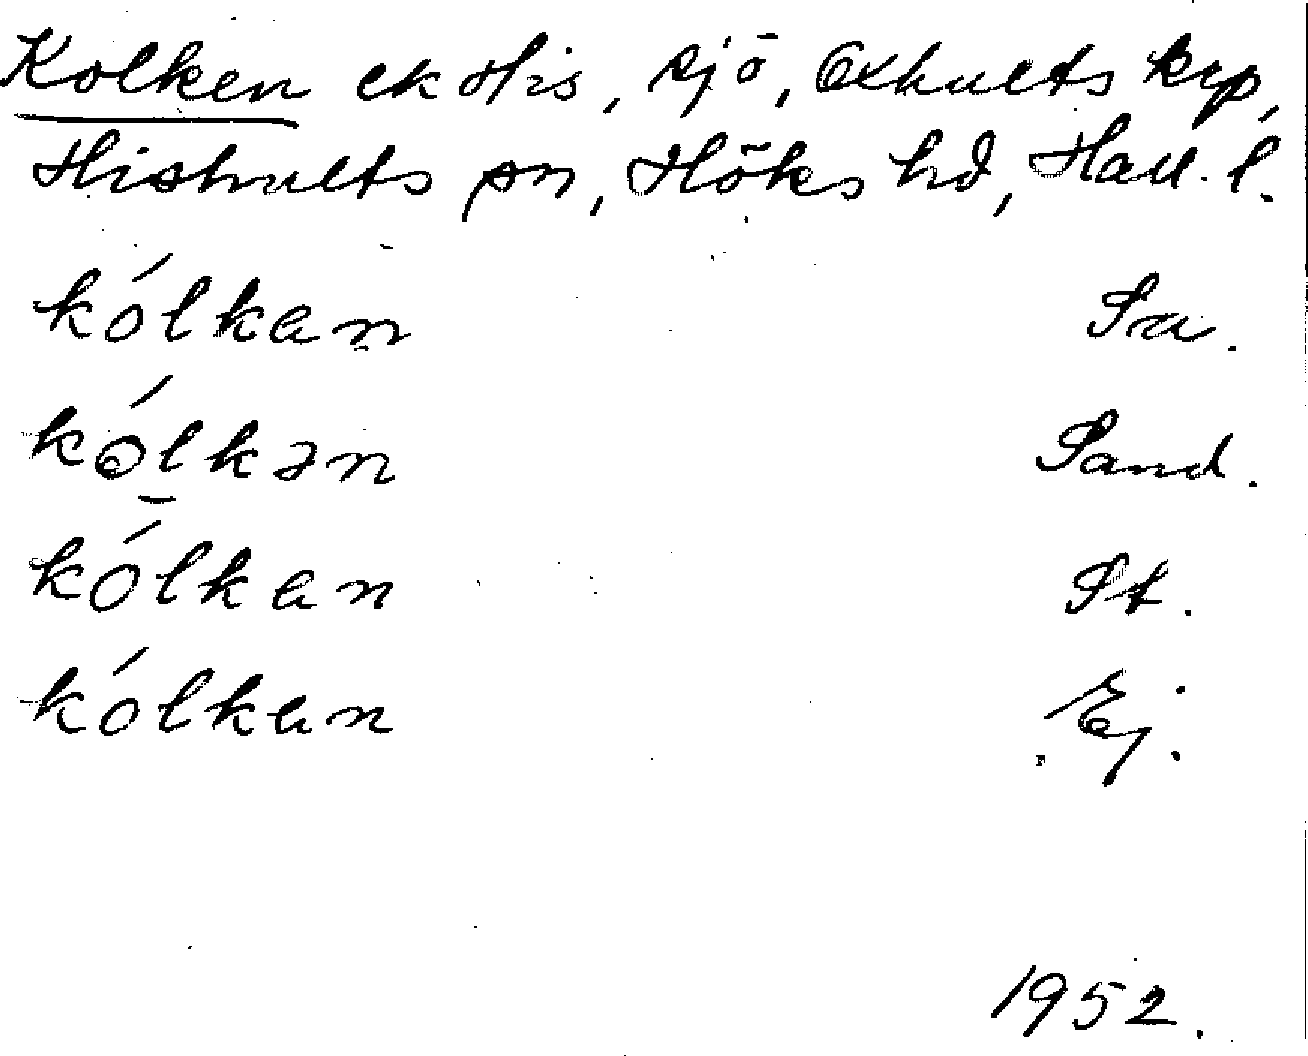 Kolken ekHis, sjö, Oxhults krp,
Hishults sn, Höks hd, Hall. l.
kólkan Sa.
kólkən Sand.
kólkan St.
kólkan Ej.
1952.